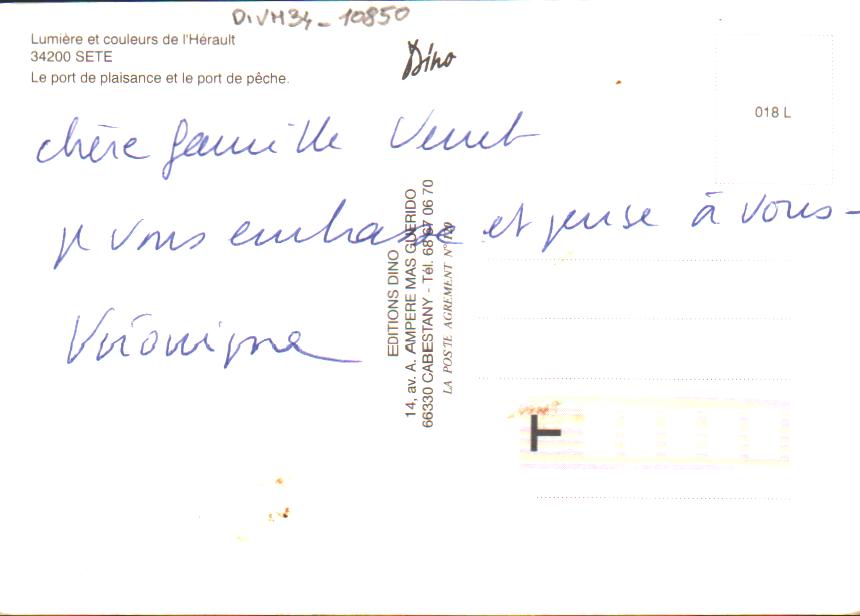 DIVM34-10850
Lumière et couleurs de l'Hérault
34200 SETE
Le port de plaisance et le port de pêche.
Dino
018 L
chère famille Venet
je vous embrasse et pense à vous-
Véronique
EDITIONS DINO
14, av. A. AMPERE MAS GUERIDO
66330 CABESTANY - Tél. 68 67 06 70
LA POSTE AGREMENT N°
T